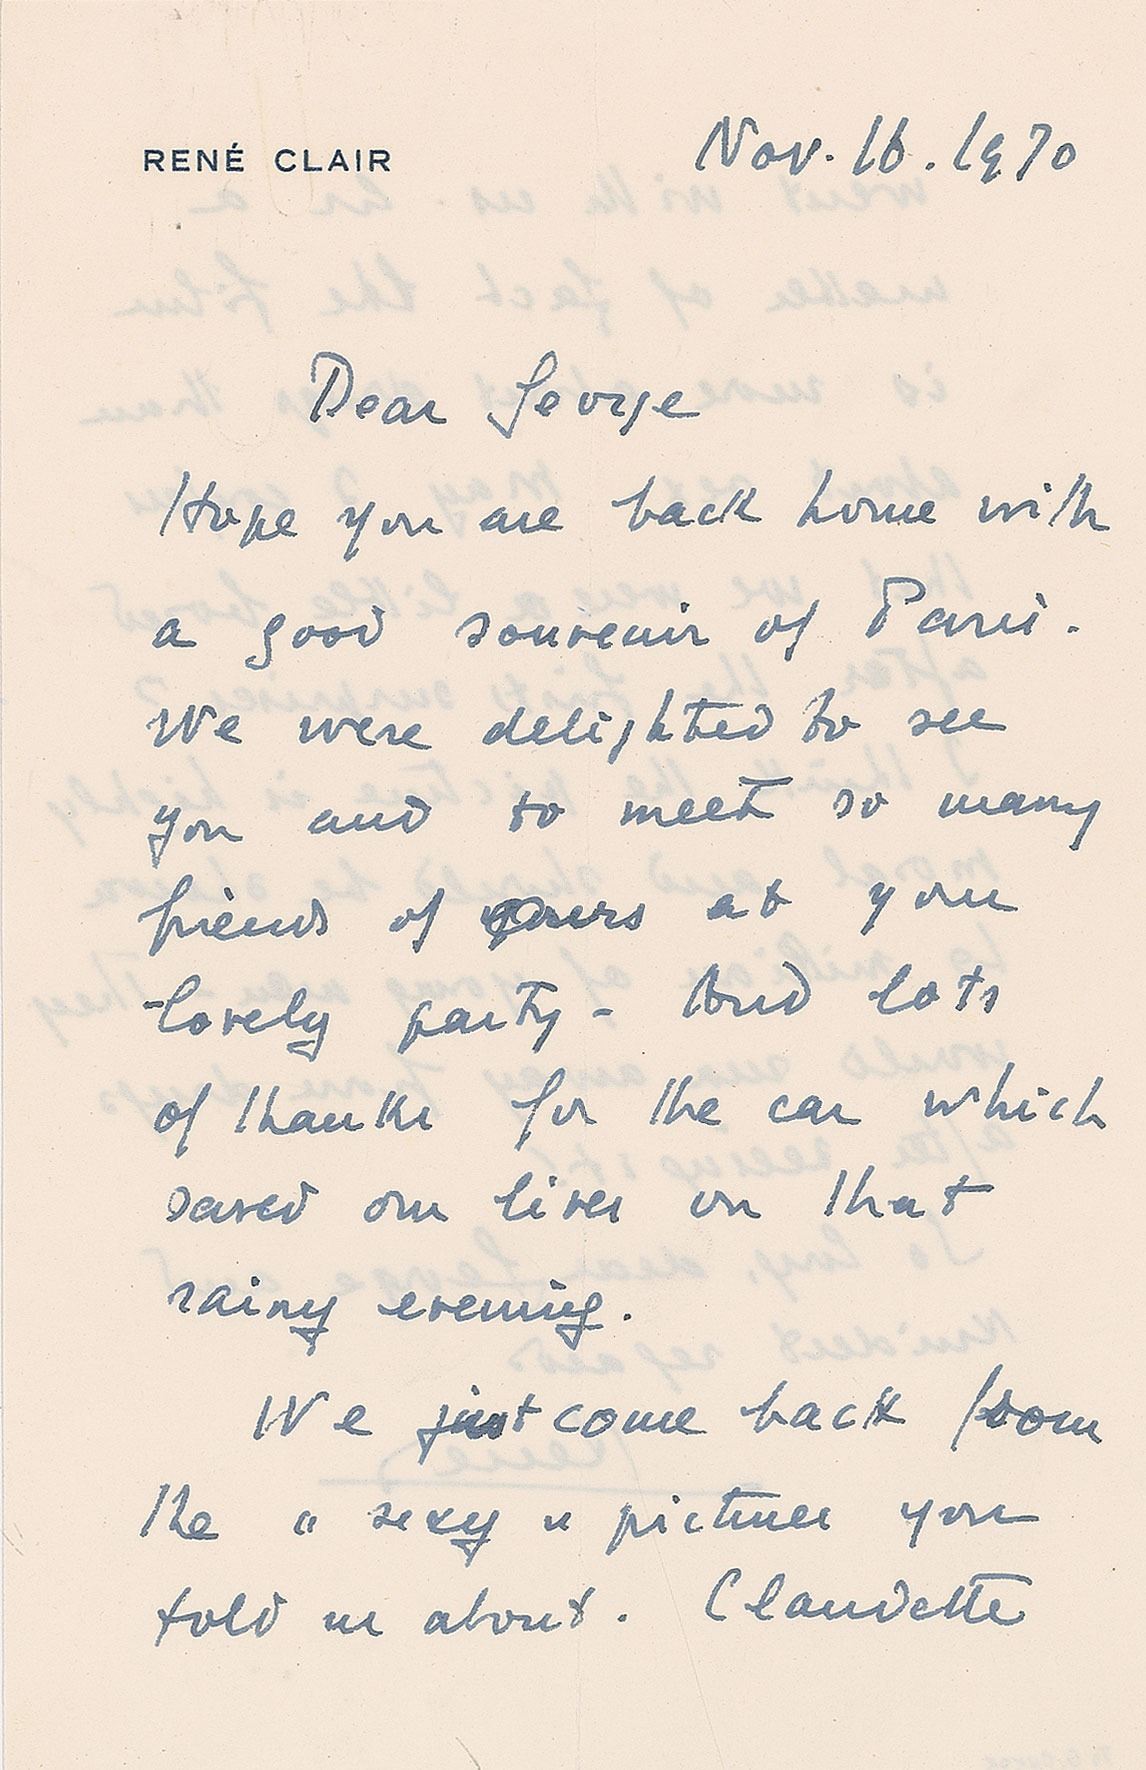 RENÉ CLAIR
Nov. 16. 1970
Dear George
Hope you are back home with
a good souvenir of Paris.
We were delighted to see
you and to meet so many
friends of yours at your
lovely party - And lots
of thanks for the car which
saved our lives on that
rainy evening.
We just come back from
the " sexy " pictures you
told us about. Claudette